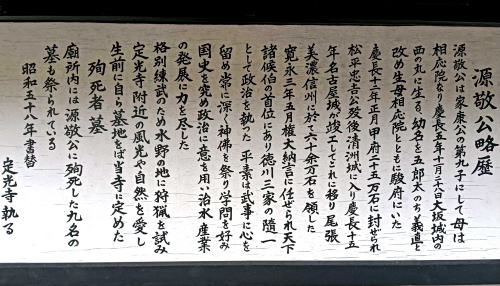 源敬公略歴
源敬公は家康公の第九子にして母は
相応院なり慶長五年十一月二十日大坂城内の
西の丸に生る幼名を五郎太のち義直と
改め生母相応院とともに駿府にいた
慶長十二年正月甲府二十五万石に封ぜられ
松平忠吉公歿後清洲城に入り慶長十五
年名古屋城が竣工してこれに移り尾張
美濃信州に於て六十余万石を領した
寛永三年五月権大納言に任ぜられ天下
諸候伯の首位にあり徳川三家の随一
として政治を執った 平素は武事に心を
留め常に深く神佛を祭り学問を好み
国史を究め政治に意を用い治水産業
の発展に力を尽した
格別練武のため水野の地に狩猟を試み
定光寺附近の風光や自然を愛し
生前に自ら墓地をば当寺に定めた
殉死者墓
廟所内には源敬公に殉死した九名の
墓も祭られている
昭和五十八年書替
定光寺執る